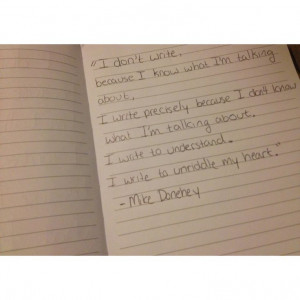 "I don't write.
because I know what I'm talking
about.
I write precisely because I don't know
what I'm talking about.
I write to understand.
I write to unriddle my heart."
- Mike Donehey